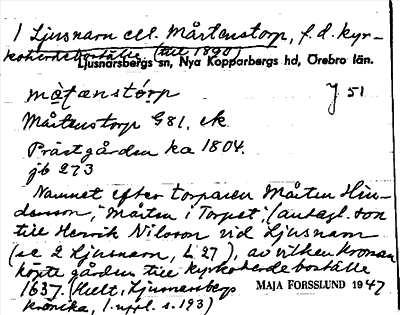 1 Ljusnarn ell. Mårtenstorp, f.d. kyr-
koherdeboställe (till 1890)
Ljusnarsbergs sn, Nya Kopparbergs hd, Örebro län.
måtanstórp J 51
Mårtenstorp G81, ek
Prästgården ka 1804.
jb 273
Namnet efter torparen Mårten Hin-
dersson, "Mårten i Torpet", (antagl. son
till Henrik Nilsson vid Ljusnarn
(se 2 Ljusnarn, L 27), av vilken kronan
köpte gården till kyrkoherdeboställe
1637. (Hult, Ljusnarsbergs
krönika, 1. uppl. s. 193)
MAJA FORSSLUND 1947